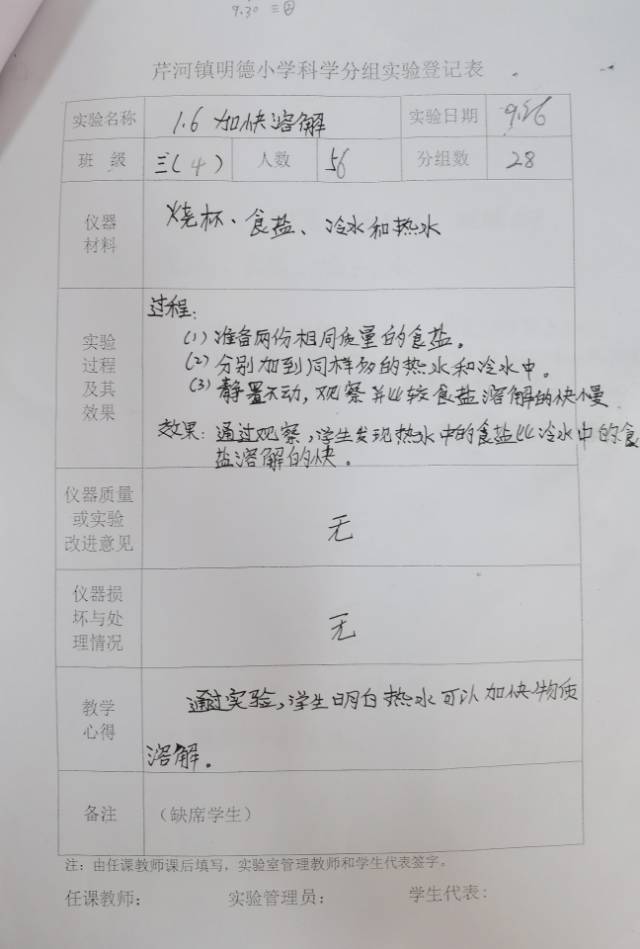 9.30 三四
芹河镇明德小学科学分组实验登记表
实验名称 1.6 加快溶解 实验日期 9.26
班 级 三(4) 人数 56 分组数 28
仪器
材料
烧杯、食盐、冷水和热水
实验
过程
及其
效果
过程:
(1) 准备两份相同质量的食盐。
(2) 分别加到同样多的热水和冷水中。
(3) 静置不动,观察并比较食盐溶解的快慢
效果: 通过观察,学生发现热水中的食盐比冷水中的食
盐溶解的快。
仪器质量
或实验
改进意见
无
仪器损
坏与处
理情况
无
教学
心得
通过实验,学生明白热水可以加快物质
溶解。
备注 (缺席学生)
注: 由任课教师课后填写, 实验室管理教师和学生代表签字。
任课教师: 实验管理员: 学生代表: